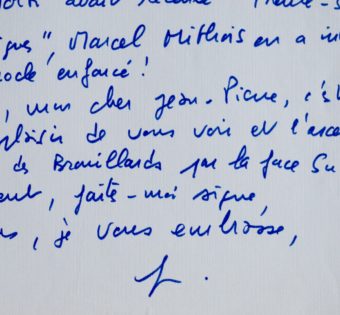 avait
igues", Marcel Mithois en a in
ock "enfoncé !
, mon cher Jean-Pierre, c'es
plaisir de vous voir et l'asce
des Brouillards par la face Su
ent, faites-moi signe,
us, je vous embrasse,